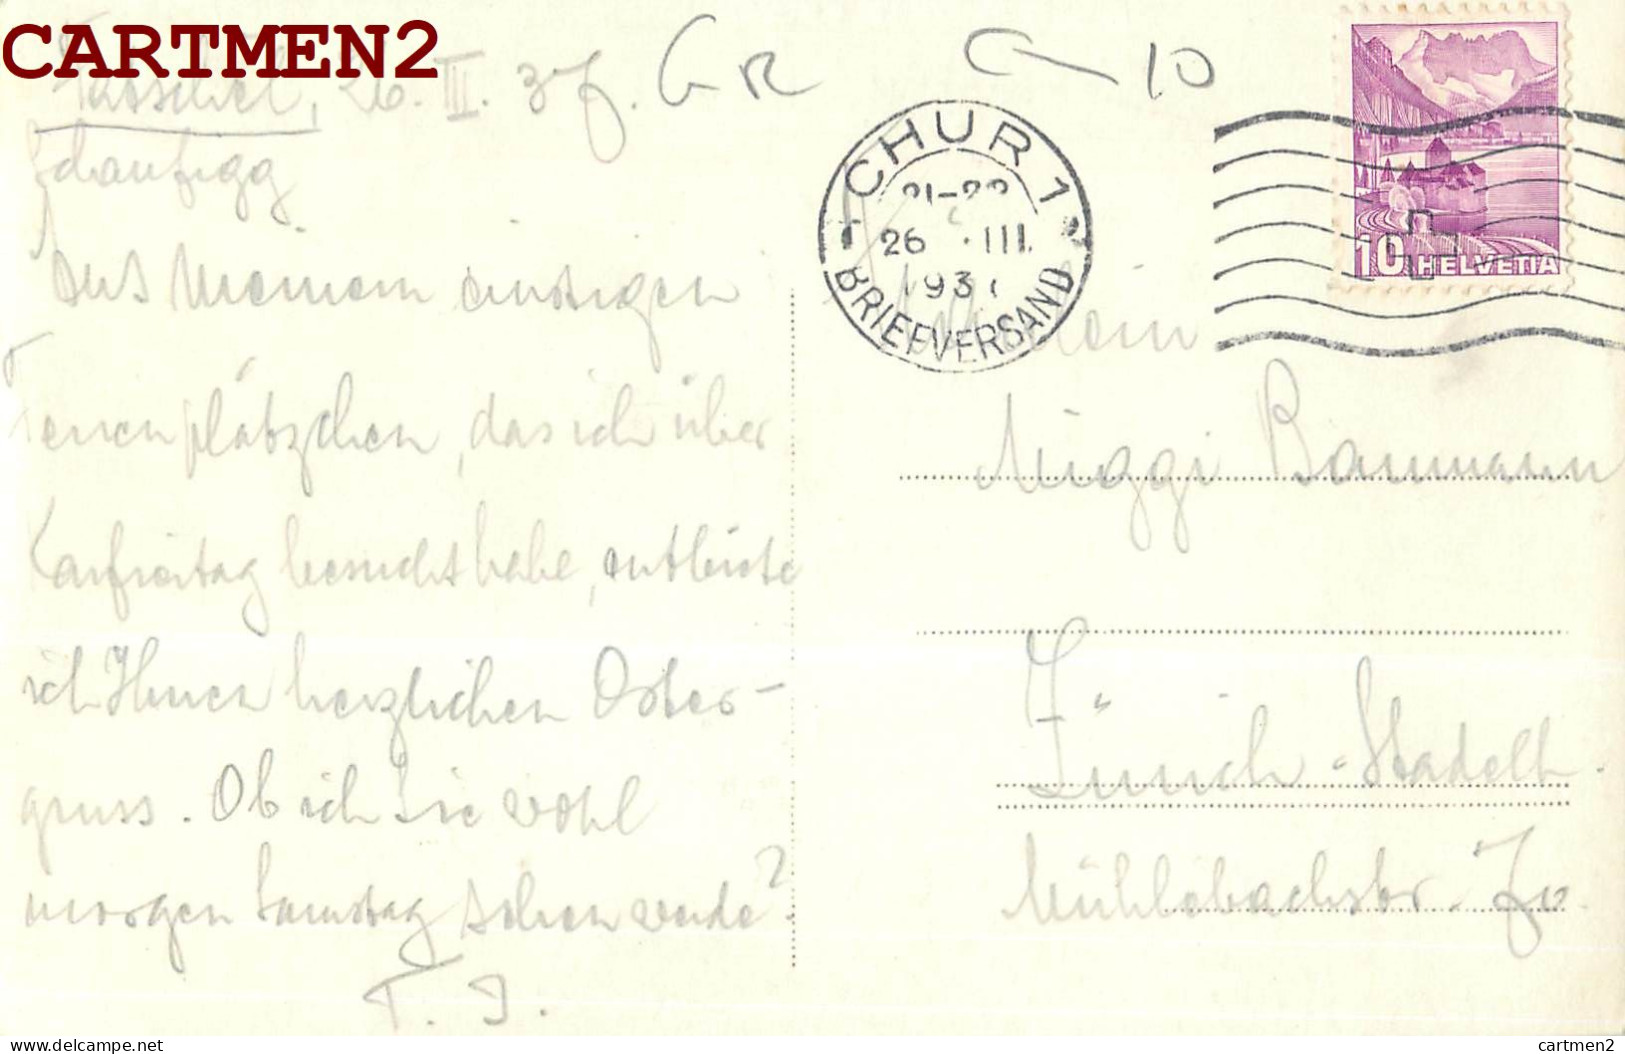 CARTMEN2
26. III. 37. GR 10
Schanfigg
Aus meinem einstigen
Ferienplätzchen, das ich über
Karfreitag besucht habe, entbiete
ich Ihnen herzlichen Oster-
gruss. Ob ich Sie wohl
morgen Samstag sehen werde?
T. J.
CHUR 1
21-22
26 . III.
193
BRIEFVERSAND
10 HELVETIA
Baumann
Zürich-Stadelh.
Mühlebachstr.
cartmen2 pour delcampe.net
cartmen2